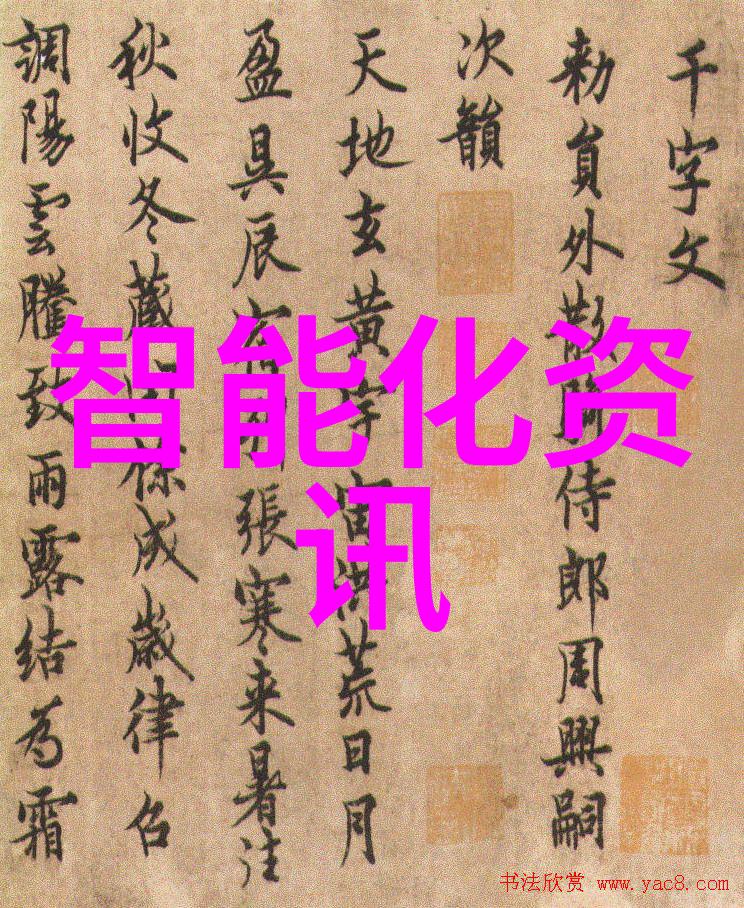 千字文
勅員外散侍郎周興嗣
次韻
天地玄黃宇宙洪荒日月
盈昃辰宿張寒来暑往
秋收冬藏餘成歲律召
調陽雲騰致雨露結為霜
智能化资
讯
书法欣赏 www.yac8.com